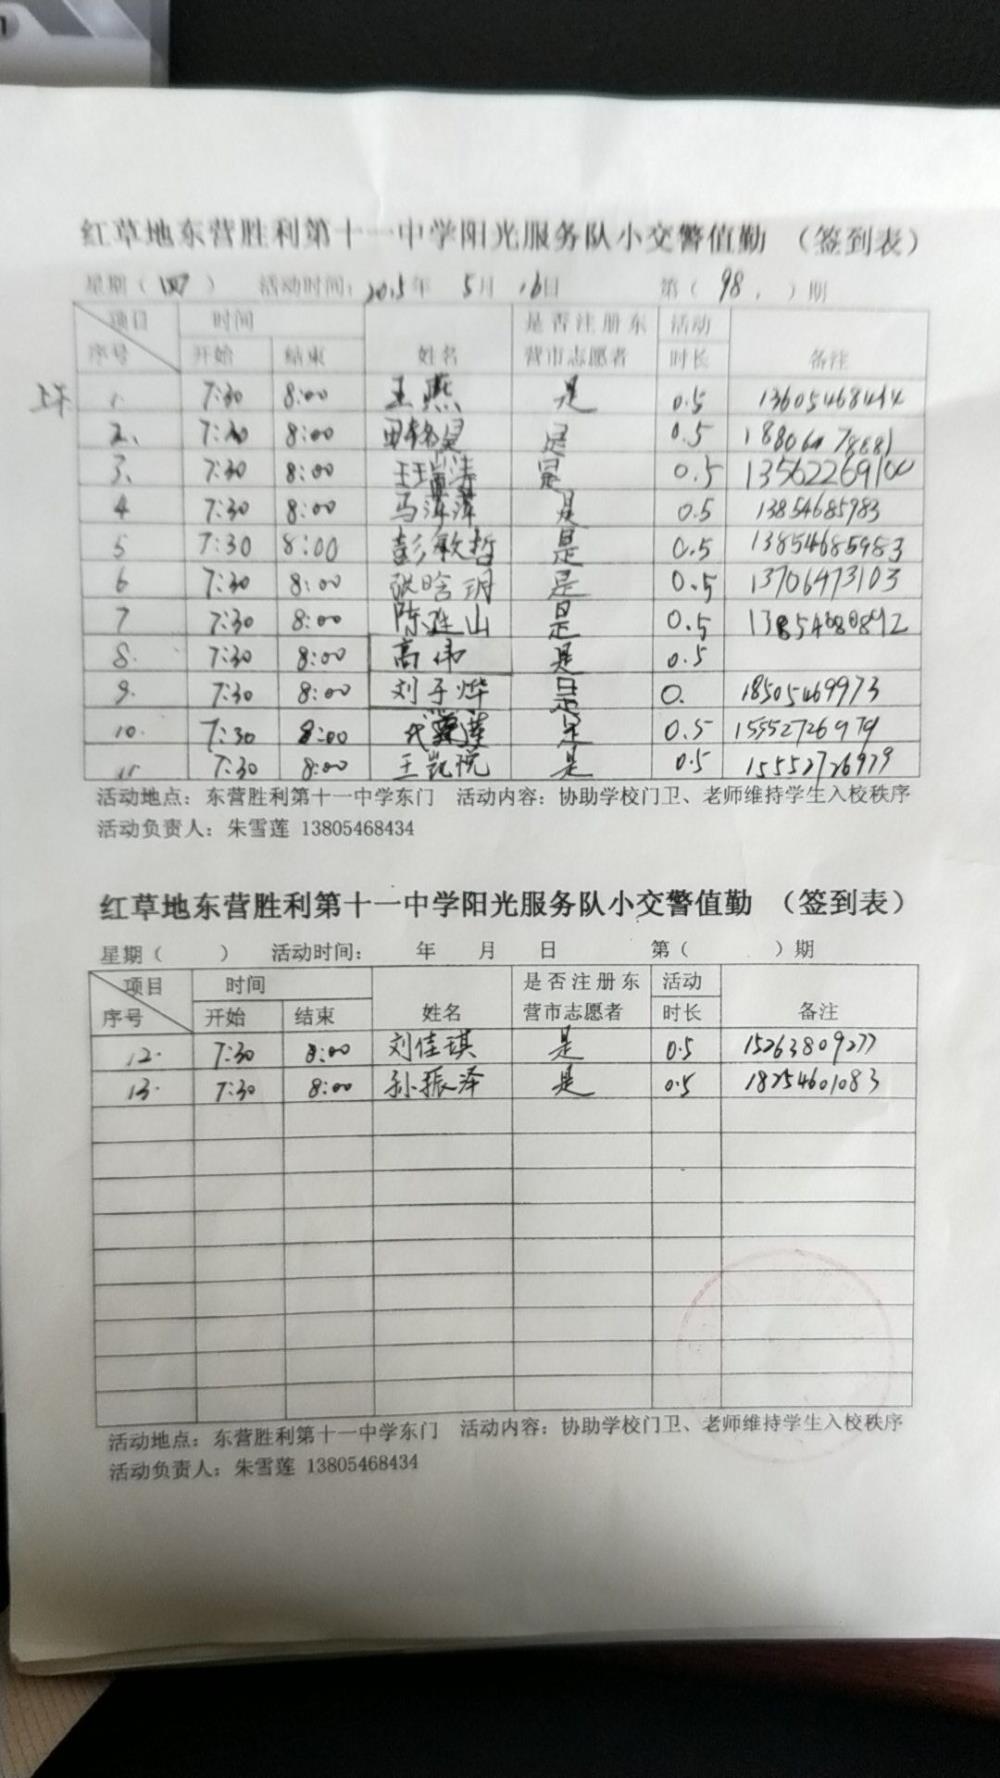 红草地东营胜利第十一中学阳光服务队小交警值勤 （签到表）
星期（四） 活动时间：2015年 5月 16日 第（98.）期
项目 时间 是否注册东 活动
序号 开始 结束 姓名 营市志愿者 时长 备注
上午 1. 7:30 8:00 王燕 是 0.5
2、 7:30 8:00 是 0.5
3、 7:30 8:00 是 0.5
4 7:30 8:00 马萍萍 是 0.5 13854685983
5 7:30 8:00 彭敏哲 是 0.5 13854685983
6 7:30 8:00 张晗玥 是 0.5 13706473103
7 7:30 8:00 陈延山 是 0.5
8. 7:30 8:00 高伟 是 0.5
9. 7:30 8:00 刘子烨 是 0. 18505469973
10. 7:30 8:00 是 0.5 15552726979
11 7:30 8:00 王凯悦 是 0.5 15552726979
活动地点：东营胜利第十一中学东门 活动内容：协助学校门卫、老师维持学生入校秩序
活动负责人：朱雪莲 13805468434
红草地东营胜利第十一中学阳光服务队小交警值勤 （签到表）
星期（ ） 活动时间： 年 月 日 第（ ）期
项目 时间 是否注册东 活动
序号 开始 结束 姓名 营市志愿者 时长 备注
12. 7:30 8:00 刘佳琪 是 0.5 15263809277
13. 7:30 8:00 孙振泽 是 0.5 18254601083
活动地点：东营胜利第十一中学东门 活动内容：协助学校门卫、老师维持学生入校秩序
活动负责人：朱雪莲 13805468434